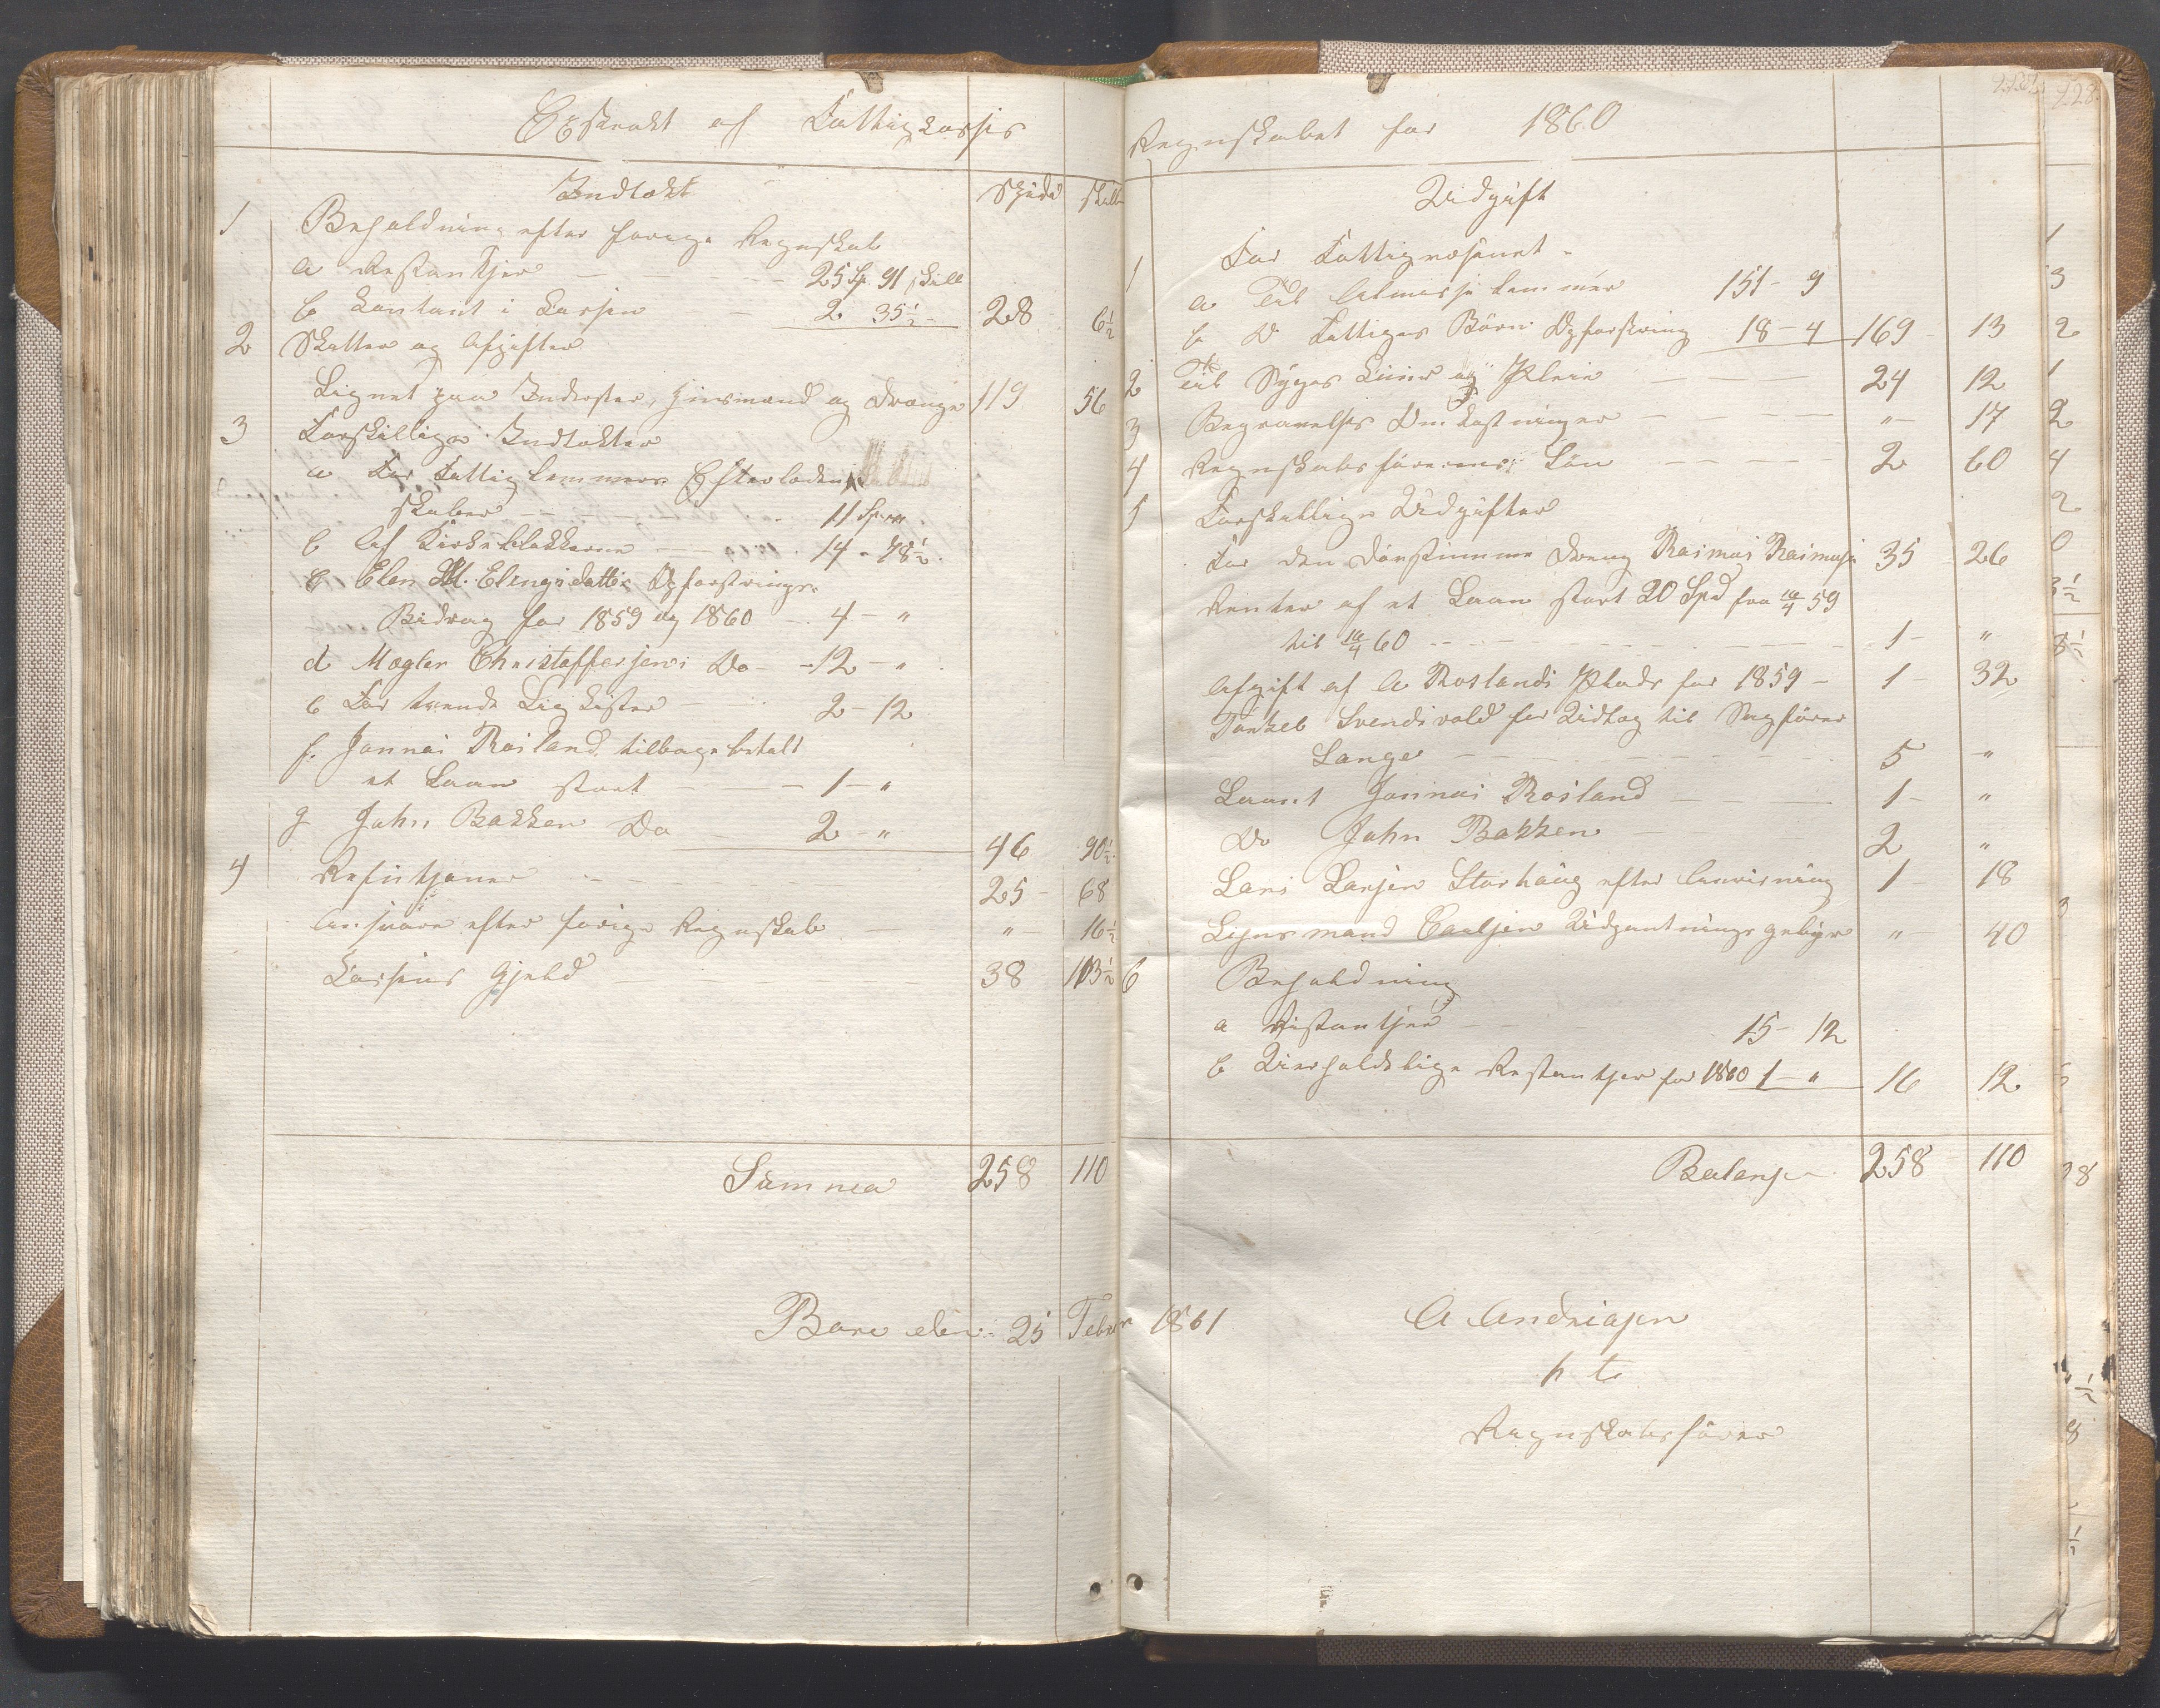 Exstrakt af Fattigkassis
Indtækt Spede Skill
1 Beholdning efter forrige Regnskab
a Restantser — — — 25 Sp 91 Skill
b Contant i Kassen 2 35½ - 28 6½
2 Skatter og Afgifter
Lignet paa Inderster, Huusmænd og Drænge 119 56
3 Forskjellige Indtækter
a For Fattiglemmers Efterladen
skaber — — 11 Spd
b Af Kirkeblokkerne — — 14 - 48½
c Elen M. Elingsdatters Opfostrings
Bidrag for 1859 og 1860 — 4 - "
d Mægler Christoffersens Do — 12 - "
e For tvende Ligkister — 2 - 12
f. Jonnas Rosland tilbagebetalt
et Laan stort — — 1 - "
g John Bakken Do — 2 - " 46 90½
4 Refusjoner — — — 25 - 68
Ansvare efter forige Regnskab — " - 16½
Kassens Gjeld — — — 38 103½
Summa 258 110
Bore den 25 Februar 1861
228
Regnskabet for 1860
Udgift
1 For Fattigvæsenet -
a Til Almisselemmer 151 - 9
b Do Fattiges Børns Opfostring 18 - 4 169 - 13
2 Til Syges Kuur og Pleie — — — 24 12
3 Begravelses Omkostninger — — — " - 17
4 Regnskabsførerens Løn — — — 2 60
5 Forskjellige Udgifter
For den Døvstumme Dreng Rasmus Rasmus 35 26
Renter af et Laan stort 20 Spd fra 59
til 60 — — — 1 - "
Afgift af A Roslands Plads for 1859 — 1 - 32
Tønkel Svendsvold for Udlæg til Sagfører
Lange — — — 5 "
Laant Jonnas Rosland — — — 1 - "
Do John Bakken — 2 "
Lars Larsen Storhaug efter Anvisning 1 - 18
Lensmand Carlsen Udpantnings gebyr " - 40
6 Beholdning
a Restantser — — 15 - 12
b Uerholdelige Restantser for 1860 1 - " 16 12
Balanse 258 - 110
A Andreasen
p t
Regnskabsfører